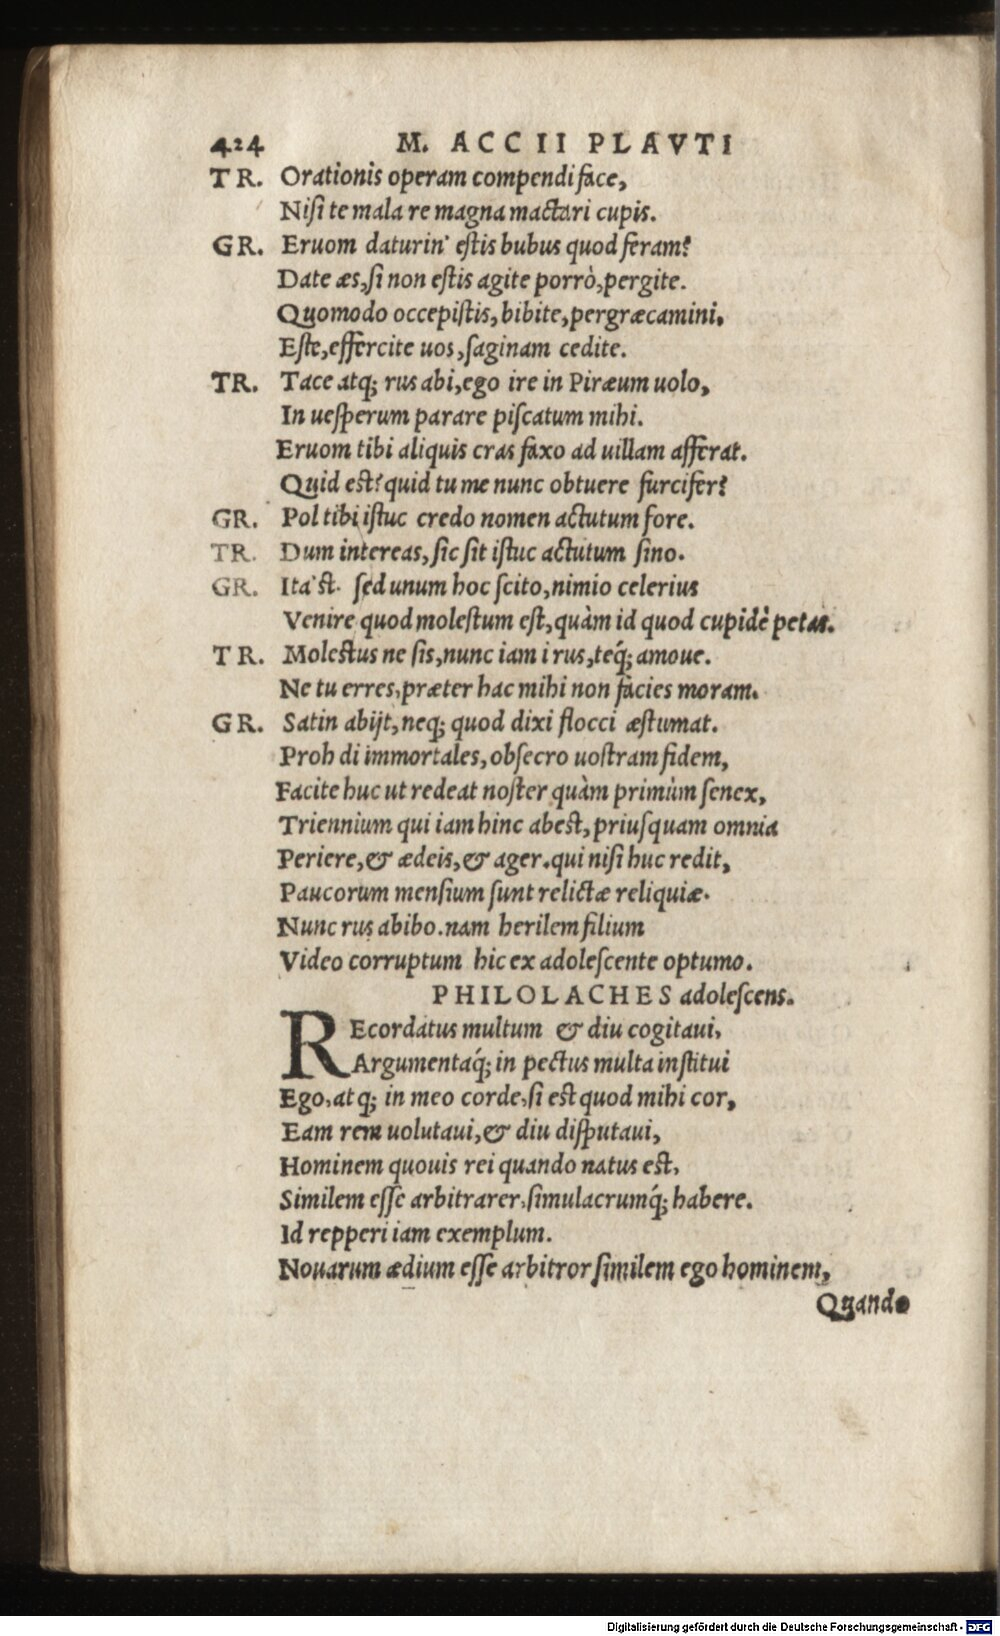 424 M. ACCII PLAVTI
TR. Orationis operam compendi face,
Nisi te mala re magna mactari cupis.
GR. Eruom daturin' estis bubus quod feram?
Date æs, si non estis agite porrò, pergite.
Quomodo occepistis, bibite, pergræcamini,
Este, effercite uos, saginam cedite.
TR. Tace atq; rus abi, ego ire in Piræum uolo,
In uesperum parare piscatum mihi.
Eruom tibi aliquis cras faxo ad uillam afferat.
Quid est? quid tu me nunc obtuere furcifer?
GR. Pol tibi istuc credo nomen actutum fore.
TR. Dum intereas, sic sit istuc actutum sino.
GR. Ita'st. sed unum hoc scito, nimio celerius
Venire quod molestum est, quàm id quod cupidè petas.
TR. Molestus ne sis, nunc iam i rus, teq́; amoue.
Ne tu erres, præter hac mihi non facies moram.
GR. Satin abijt, neq; quod dixi flocci æstumat.
Proh di immortales, obsecro uostram fidem,
Facite huc ut redeat noster quàm primùm senex,
Triennium qui iam hinc abest, priusquam omnia
Periere, & ædeis, & ager. qui nisi huc redit,
Paucorum mensium sunt relictæ reliquiæ.
Nunc rus abibo. nam herilem filium
Video corruptum hic ex adolescente optumo.
PHILOLACHES adolescens.
REcordatus multum & diu cogitaui,
Argumentaq́; in pectus multa institui
Ego, atq; in meo corde, si est quod mihi cor,
Eam rem uolutaui, & diu disputaui,
Hominem quouis rei quando natus est,
Similem esse arbitrarer, simulacrumq́; habere.
Id repperi iam exemplum.
Nouarum ædium esse arbitror similem ego hominem,
Quando
Digitalisierung gefördert durch die Deutsche Forschungsgemeinschaft - DFG